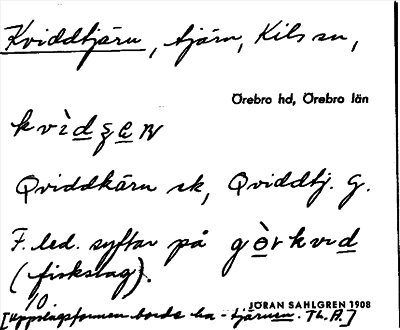 Kviddtjärn, tjärn, Kils sn,
Örebro hd, Örebro län
Qviddkärn sk, Qviddtj. G.
F. led. syftar på
(fiskslag).
10.
JÖRAN SAHLGREN 1908
[Uppslagsformen borde ha -tjärnen. Th. A.]